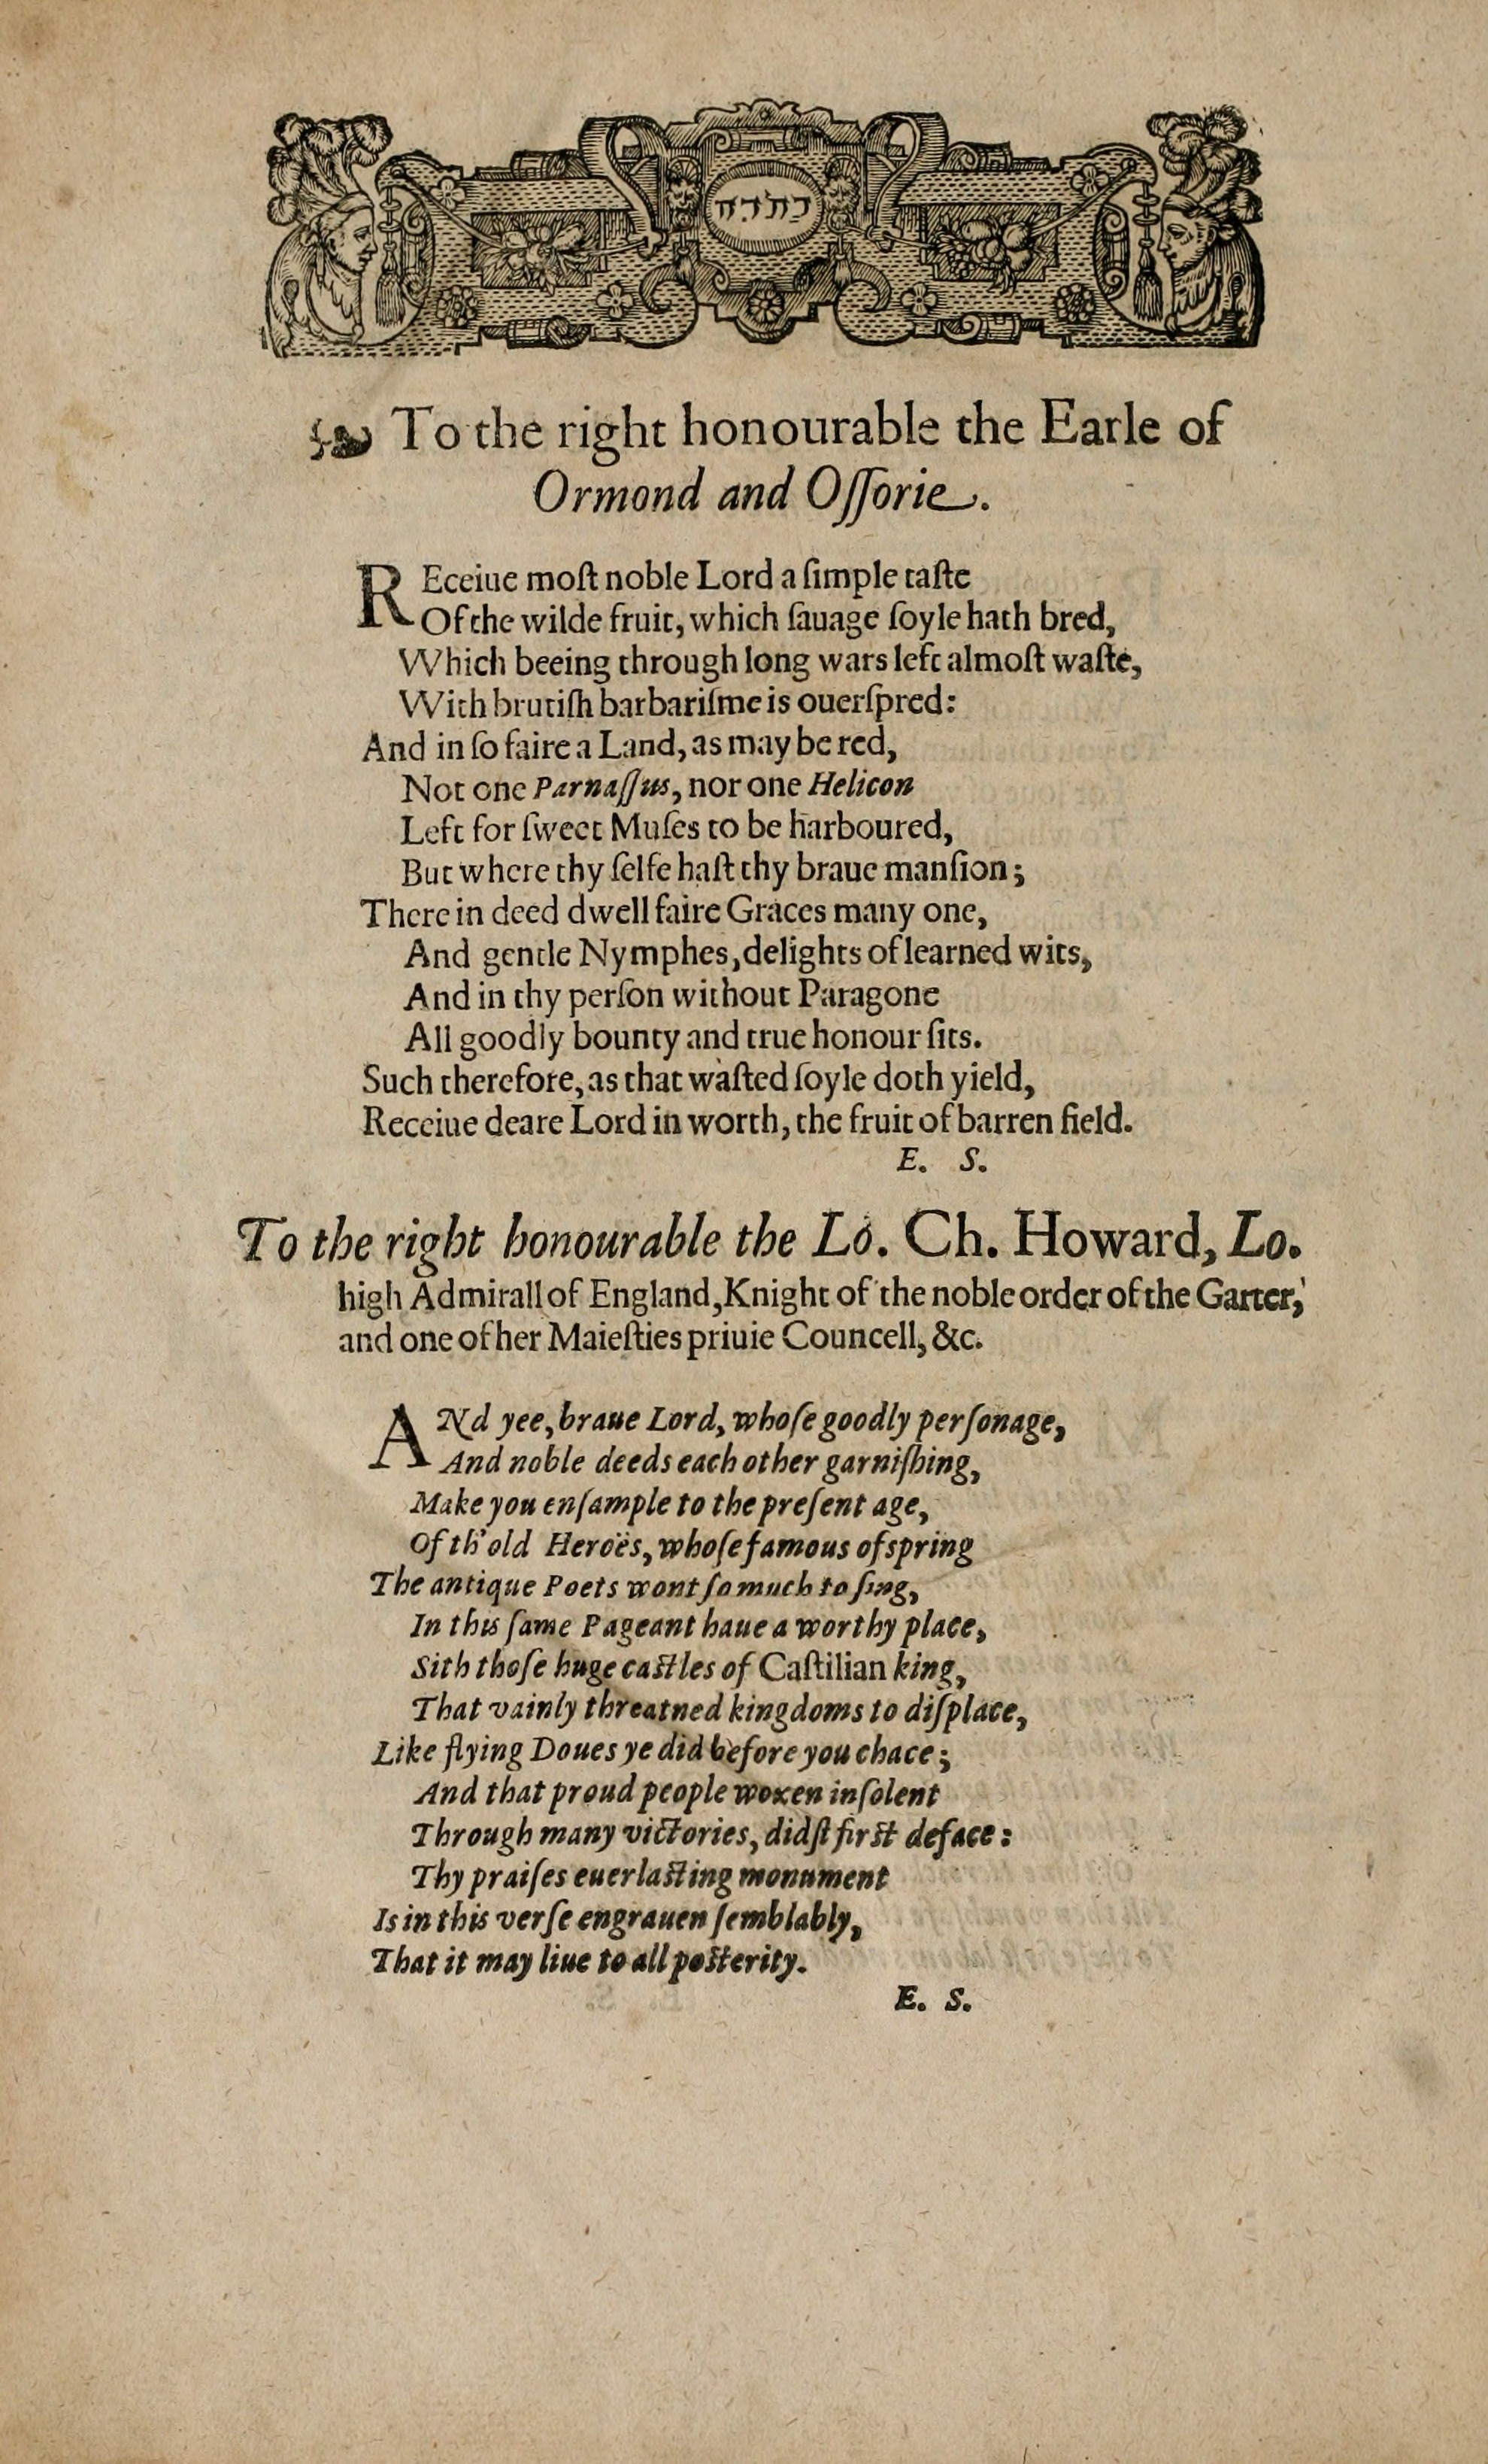 To the right honourable the Earle of
Ormond and Oſſorie.
REceiue moſt noble Lord a ſimple taſte
Of the wilde fruit, which ſauage ſoyle hath bred,
Which beeing through long wars left almoſt waſte,
With brutiſh barbariſme is ouerſpred:
And in ſo faire a Land, as may be red,
Not one Parnaſſus, nor one Helicon
Left for ſweet Muſes to be harboured,
But where thy ſelfe haſt thy braue manſion;
There in deed dwell faire Graces many one,
And gentle Nymphes, delights of learned wits,
And in thy perſon without Paragone
All goodly bounty and true honour ſits.
Such therefore, as that waſted ſoyle doth yield,
Receiue deare Lord in worth, the fruit of barren field.
E. S.
To the right honourable the Lo. Ch. Howard, Lo.
high Admirall of England, Knight of the noble order of the Garter,
and one of her Maieſties priuie Councell, &c.
ANd yee, braue Lord, whoſe goodly perſonage,
And noble deeds each other garniſhing,
Make you enſample to the preſent age,
Of th' old Heroës, whoſe famous ofspring
The antique Poets wont ſo much to ſing,
In this ſame Pageant haue a worthy place,
Sith thoſe huge caſtles of Caſtilian king,
That vainly threatned kingdoms to diſplace,
Like flying Doues ye did before you chace;
And that proud people woxen inſolent
Through many victories, didſt firſt deface:
Thy praiſes euerlaſting monument
Is in this verſe engrauen ſemblably,
That it may liue to all poſterity.
E. S.